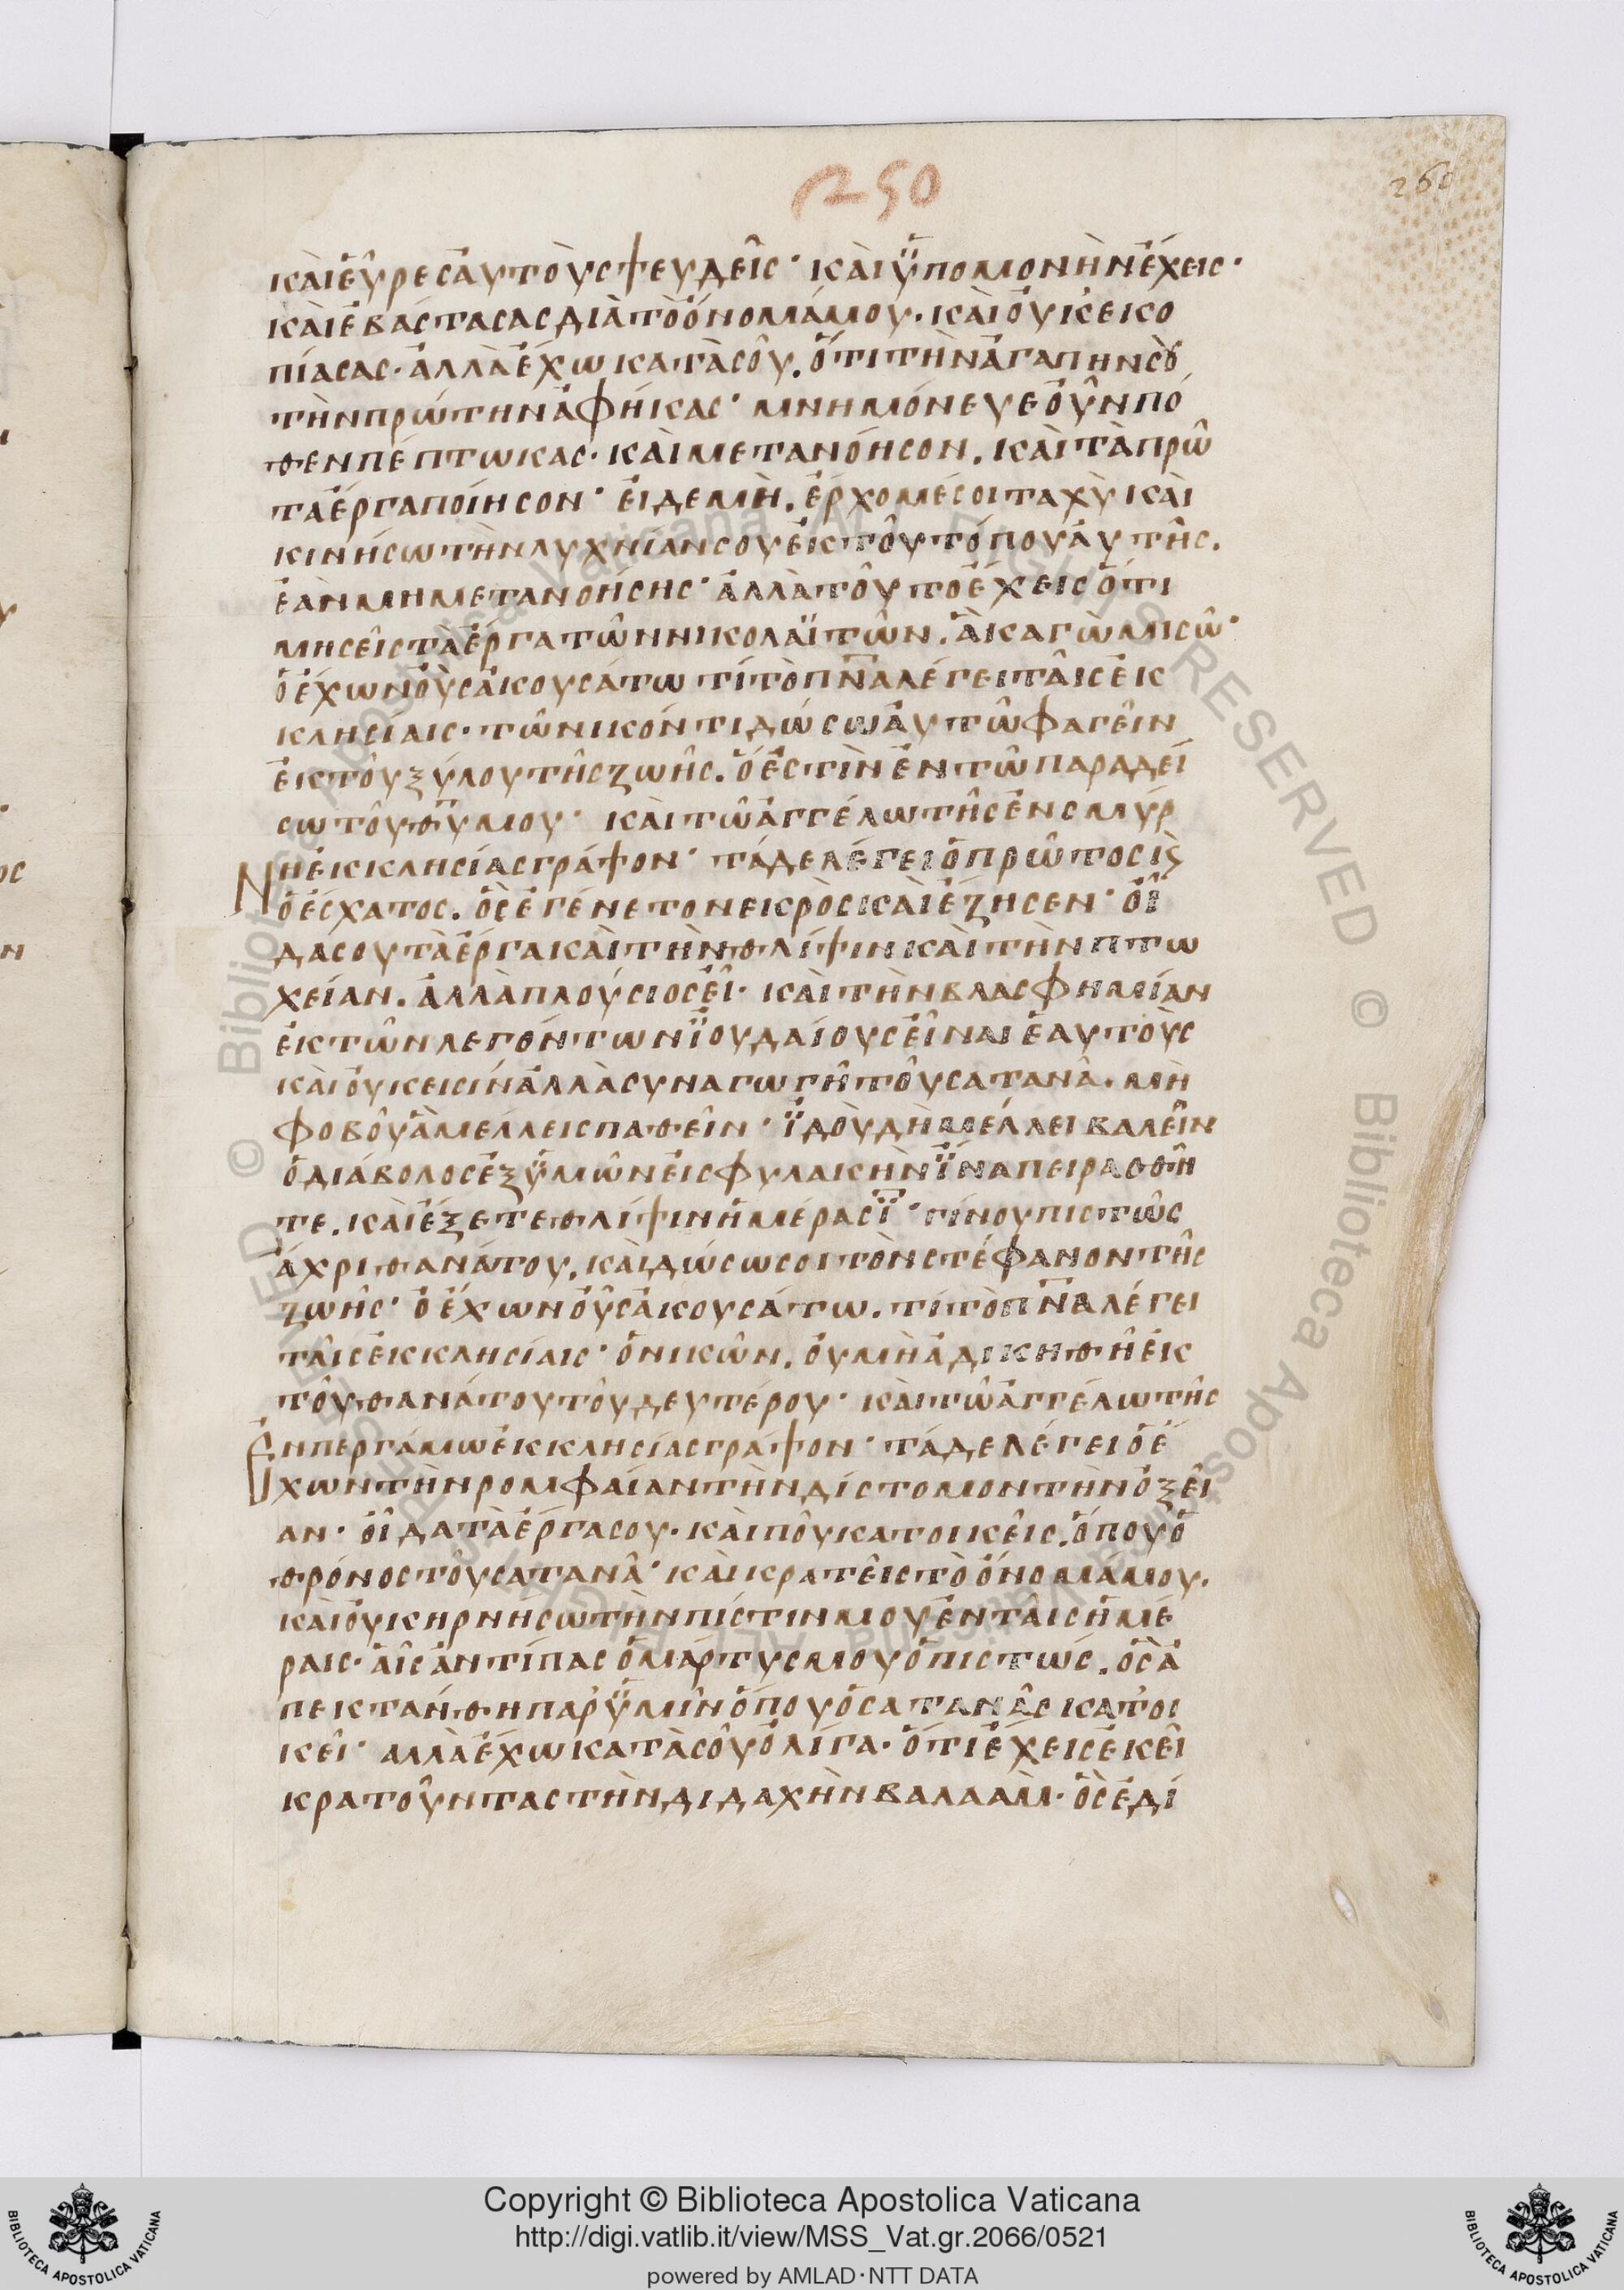 1250
260
καὶ εὗρες αὐτοὺς ψευδεῖς· καὶ ὑπομονὴν ἔχεις·
καὶ ἐβάστασας διὰ τὸ ὄνομά μου. καὶ οὐκ ἐκο
πίασας· ἀλλὰ ἔχω κατὰ σοῦ. ὅτι τὴν ἀγάπην σοῦ
τὴν πρώτην ἀφῆκας· μνημόνευε οὖν πό
θεν πέπτωκας· καὶ μετανόησον. καὶ τὰ πρῶ
τα ἔργα ποίησον· εἰ δε μὴ. ἔρχομέ σοι ταχὺ καὶ
κινήσω τὴν λυχνίαν σου ἐκ τοῦ τόπου αὐτῆς.
ἐὰν μη μετανοήσης· ἀλλὰ τοῦτο ἔχεις ὅτι
μησεῖς τὰ ἔργα τῶν νικολαϊτῶν. ἃ καγὼ μισῶ·
ὁ ἔχων οὖς ἀκουσάτω τί τὸ πνα λέγει ταῖς ἐκ
κλησίαις· τῶ νικόντι δώσω αὐτῶ φαγεῖν
ἐκ τοῦ ξύλου τῆς ζωῆς. ὅ ἐστὶν ἐν τῶ παραδεί
σω τοῦ θυ μου· καὶ τῶ ἀγγέλω τῆς ἐν σμύρ
νη ἐκκλησίας γράψον· τάδε λέγει ὁ πρῶτος κὶ
ὁ ἔσχατος. ὃς ἐγένετο νεκρὸς καὶ ἔζησεν· οἶ
δα σου τὰ ἔργα καὶ τὴν θλίψιν καὶ τὴν πτω
χείαν. ἀλλὰ πλούσιος εἶ· καὶ τὴν βλασφημίαν
ἐκ τῶν λεγόντων ἰουδαίους εἶναι ἑαυτοὺς
καὶ οὐκ εισίν ἀλλὰ συναγωγῆ τοῦ σατανᾶ. μὴ
φοβοῦ ἃ μέλλεις παθεῖν· ἰδοὺ δὴ μέλλει βαλεῖν
ὁ διάβολος ἐξ ὑμῶν εἰς φυλακὴν ἵνα πειρασθῆ
τε. καὶ ἕξετε θλίψιν ἡμέρας ϊ· γίνου πιστῶς
ἄχρι θανάτου. καὶ δώσω σοι τὸν στέφανον τῆς
ζωῆς· ὁ ἔχων οὖς ἀκουσάτω. τί τὸ πνα λέγει
ταῖς ἐκκλησίαις· ὁ νικῶν. οὐ μὴ ἀδικηθῆ ἐκ
τοῦ θανάτου τοῦ δευτέρου· καὶ τῶ ἀγγέλω τῆς
ἐν περγάμω ἐκκλησίας γράψον· τάδε λέγει ὁ ἔ
χων τὴν ρομφαίαν τὴν δίστομον τὴν ὀξεῖ
αν· οἶδα τὰ ἔργα σου· καὶ ποῦ κατοικεῖς. ὅπου ὁ
θρόνος τοῦ σατανᾶ· καὶ κρατεῖς τὸ ὄνομά μου.
καὶ οὐκ ηρνήσω τὴν πίστιν μου ἐν ταῖς ἡμέ
ραις· αἷς ἀντίπας ὁ μάρτυς μου ὁ πιστώς. ὃς ἀ
πεκτάνθη παρ ὑμῖν ὅπου ὁ σατανᾶς κατοι
κεῖ· αλλὰ ἔχω κατὰ σοῦ ὀλίγα· ὅτι ἔχεις ἐκεῖ
κρατοῦντας τὴν διδαχὴν βαλαάμ· ὃς ἐδί
Copyright © Biblioteca Apostolica Vaticana
http://digi.vatlib.it/view/MSS_Vat.gr.2066/0521
powered by AMLAD·NTT DATA